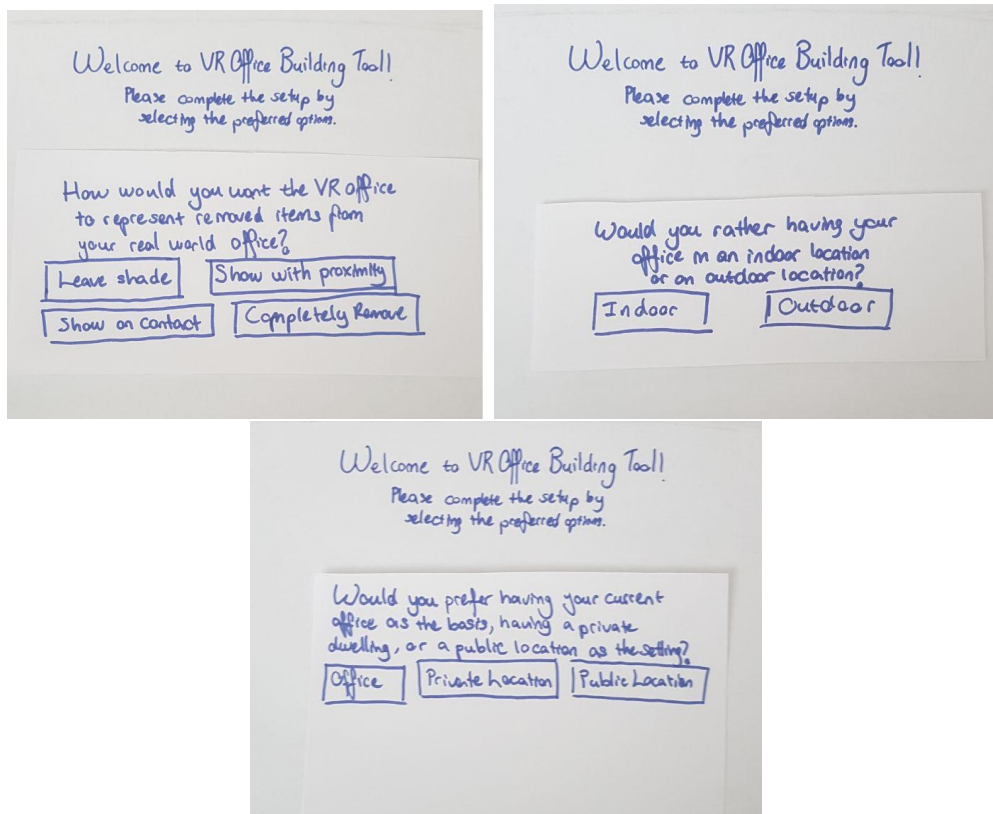 Welcome to VR Office Building Tool!
Please complete the setup by
selecting the preferred options.
How would you want the VR office
to represent removed items from
your real world office?
Leave shade
Show with proximity
Show on contact
Completely Remove
Welcome to VR Office Building Tool!
Please complete the setup by
selecting the preferred options.
Would you rather having your
office in an indoor location
or an outdoor location?
Indoor
Outdoor
Welcome to VR Office Building Tool!
Please complete the setup by
selecting the preferred options.
Would you prefer having your current
office as the basis, having a private
dwelling, or a public location as the setting?
Office
Private Location
Public Location